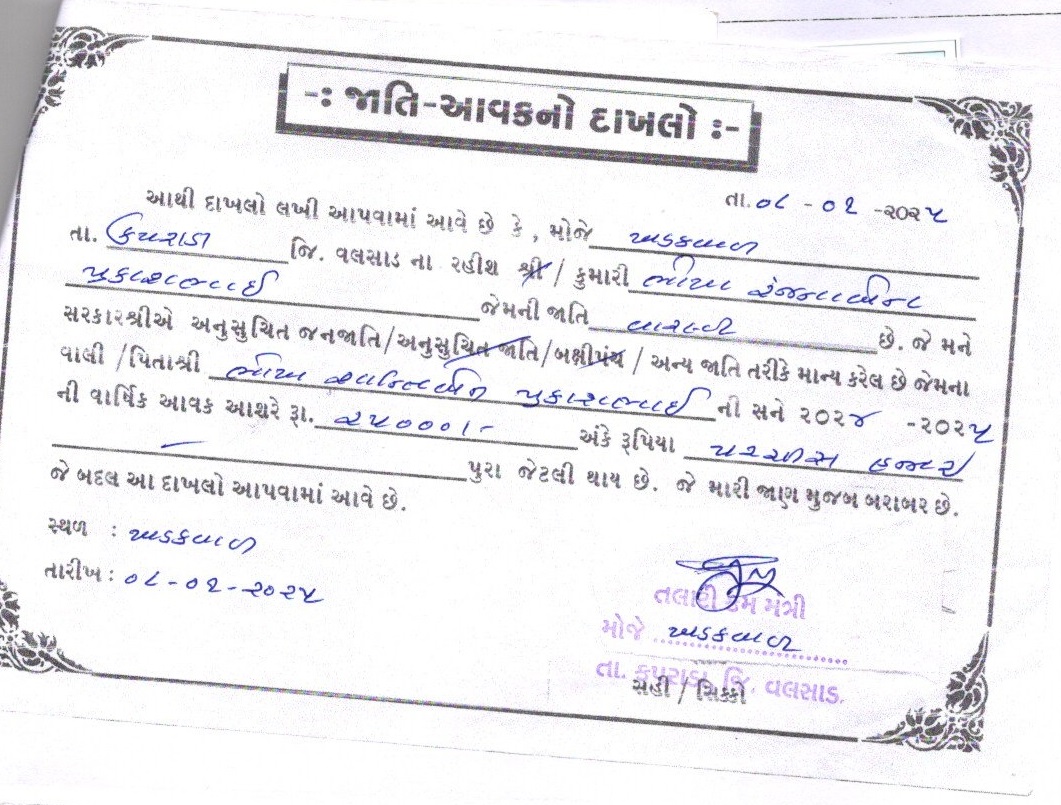 -: જાતિ-આવકનો દાખલો :-
તા. ૦૮ - ૦૨ -૨૦૨૫
આથી દાખલો લખી આપવામાં આવે છે કે, મોજે ખડકવાળ
તા. કપરાડા જિ. વલસાડ ના રહીશ શ્રી / કુમારી ભોયા રંજનાબેન
પ્રકાશભાઈ જેમની જાતિ વારલી છે. જે મને
સરકારશ્રીએ અનુસુચિત જનજાતિ/અનુસુચિત જાતિ/બક્ષીપંચ / અન્ય જાતિ તરીકે માન્ય કરેલ છે જેમના
વાલી /પિતાશ્રી ભોયા પ્રકાશભાઈ ની સને ૨૦૨૪ -૨૦૨૫
ની વાર્ષિક આવક આશરે રૂા. ૨૫૦૦૦/- અંકે રૂપિયા પચ્ચીસ હજાર
પુરા જેટલી થાય છે. જે મારી જાણ મુજબ બરાબર છે.
જે બદલ આ દાખલો આપવામાં આવે છે.
સ્થળ : ખડકવાળ
તારીખ : ૦૮-૦૨-૨૦૨૫
તલાટી કમ મંત્રી
મોજે ખડકવાળ
તા. કપરાડા, જિ. વલસાડ.
સહી / સિક્કો